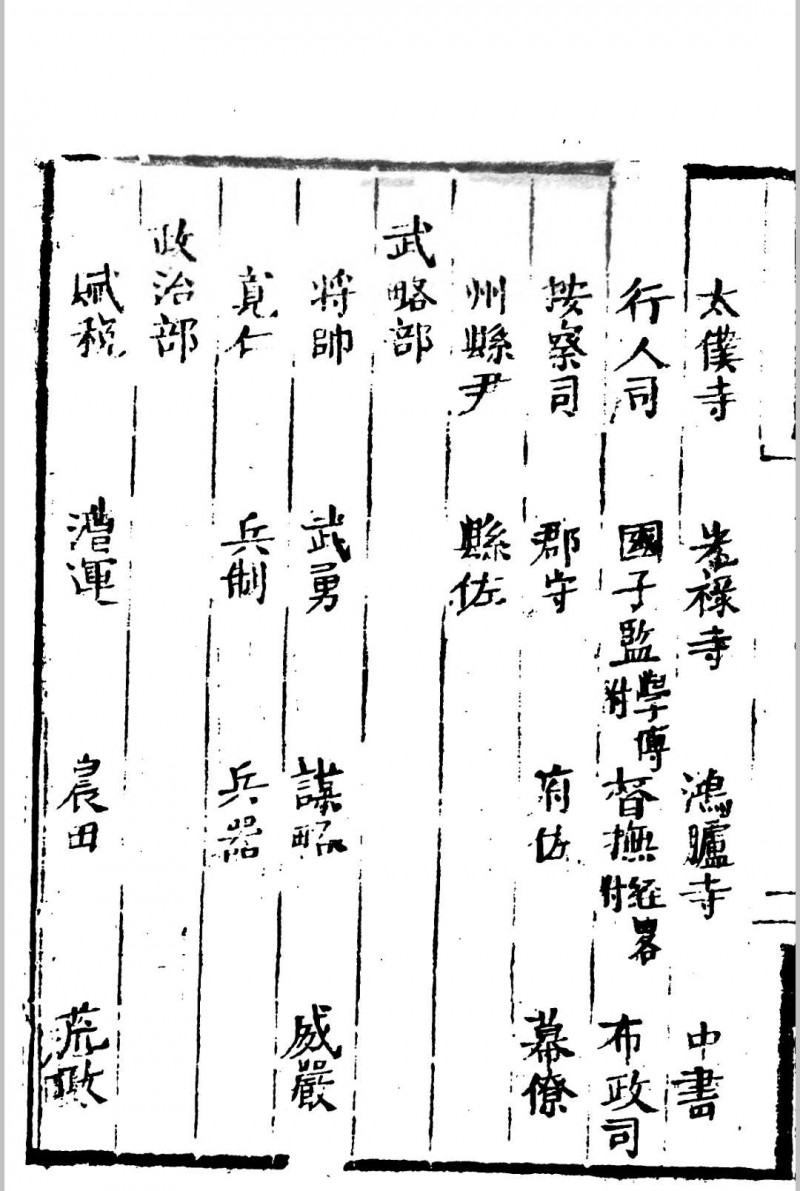 太僕寺 光祿寺 鴻臚寺 中書
行人司 國子監學博附 督撫經畧附 布政司
按察司 郡守 府佐 幕僚
州縣尹 縣佐
武略部
將帥 武勇 謀略 威嚴
寬仁 兵制 兵器
政治部
賦稅 漕運 農田 荒政